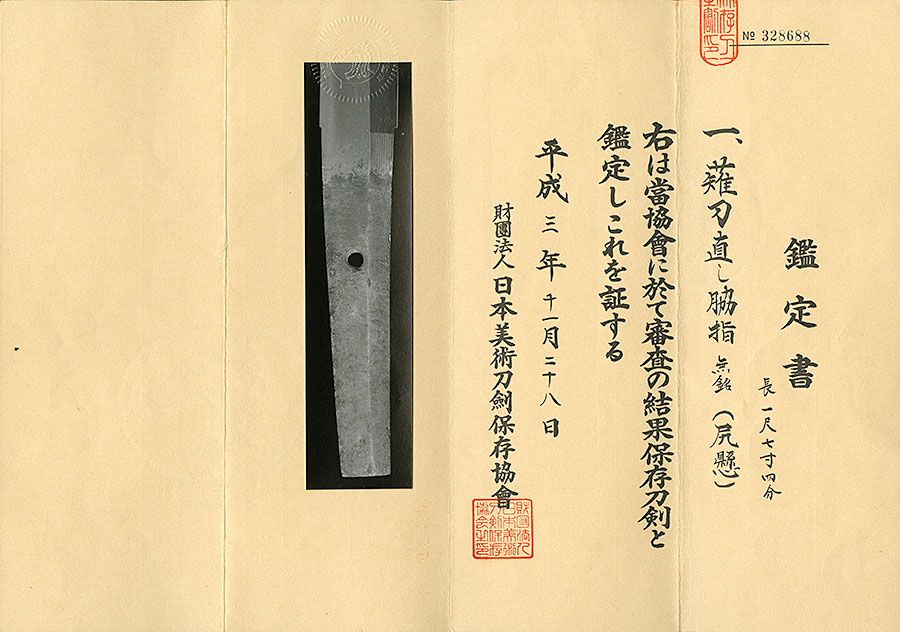 № 328688
鑑定書
長 一尺七寸四分
一、薙刀直し脇指 無銘(尻懸)
右は當協會に於て審査の結果保存刀剣と
鑑定しこれを証する
平成三年十一月二十八日
財團法人日本美術刀劍保存協會
財団法人
日本美術
刀剣保存
協会之印